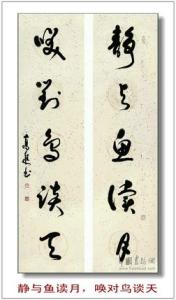 静与鱼读月
唤對鸟谈天
静与鱼读月，唤对鸟谈天